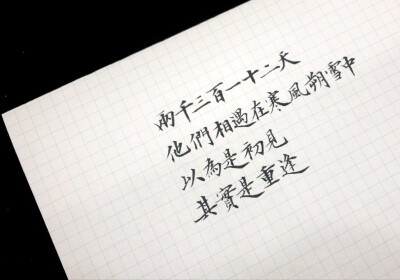 兩千三百一十二天
他們相遇在寒風朔雪中
以為是初見
其實是重逢